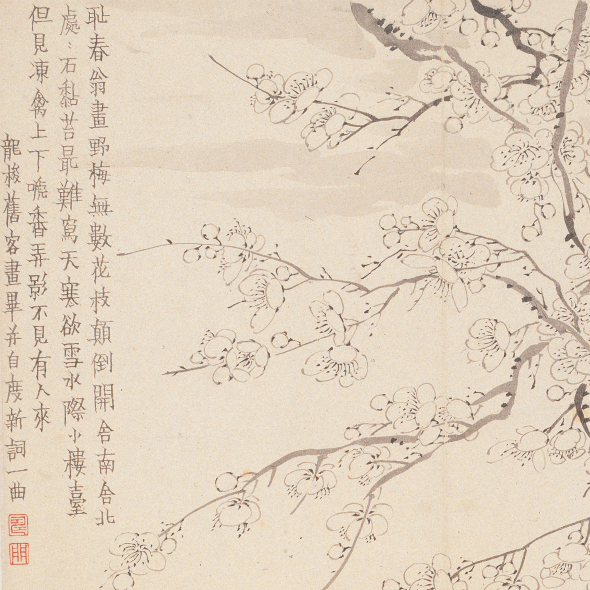 耻春翁畫野梅無數花枝顛倒開舍南舍北
處〻石黏苔最難寫天寒欲雪水際小樓臺
但見凍禽上下啅香弄影不見有人來
龍梭舊客畫畢并自度新詞一曲